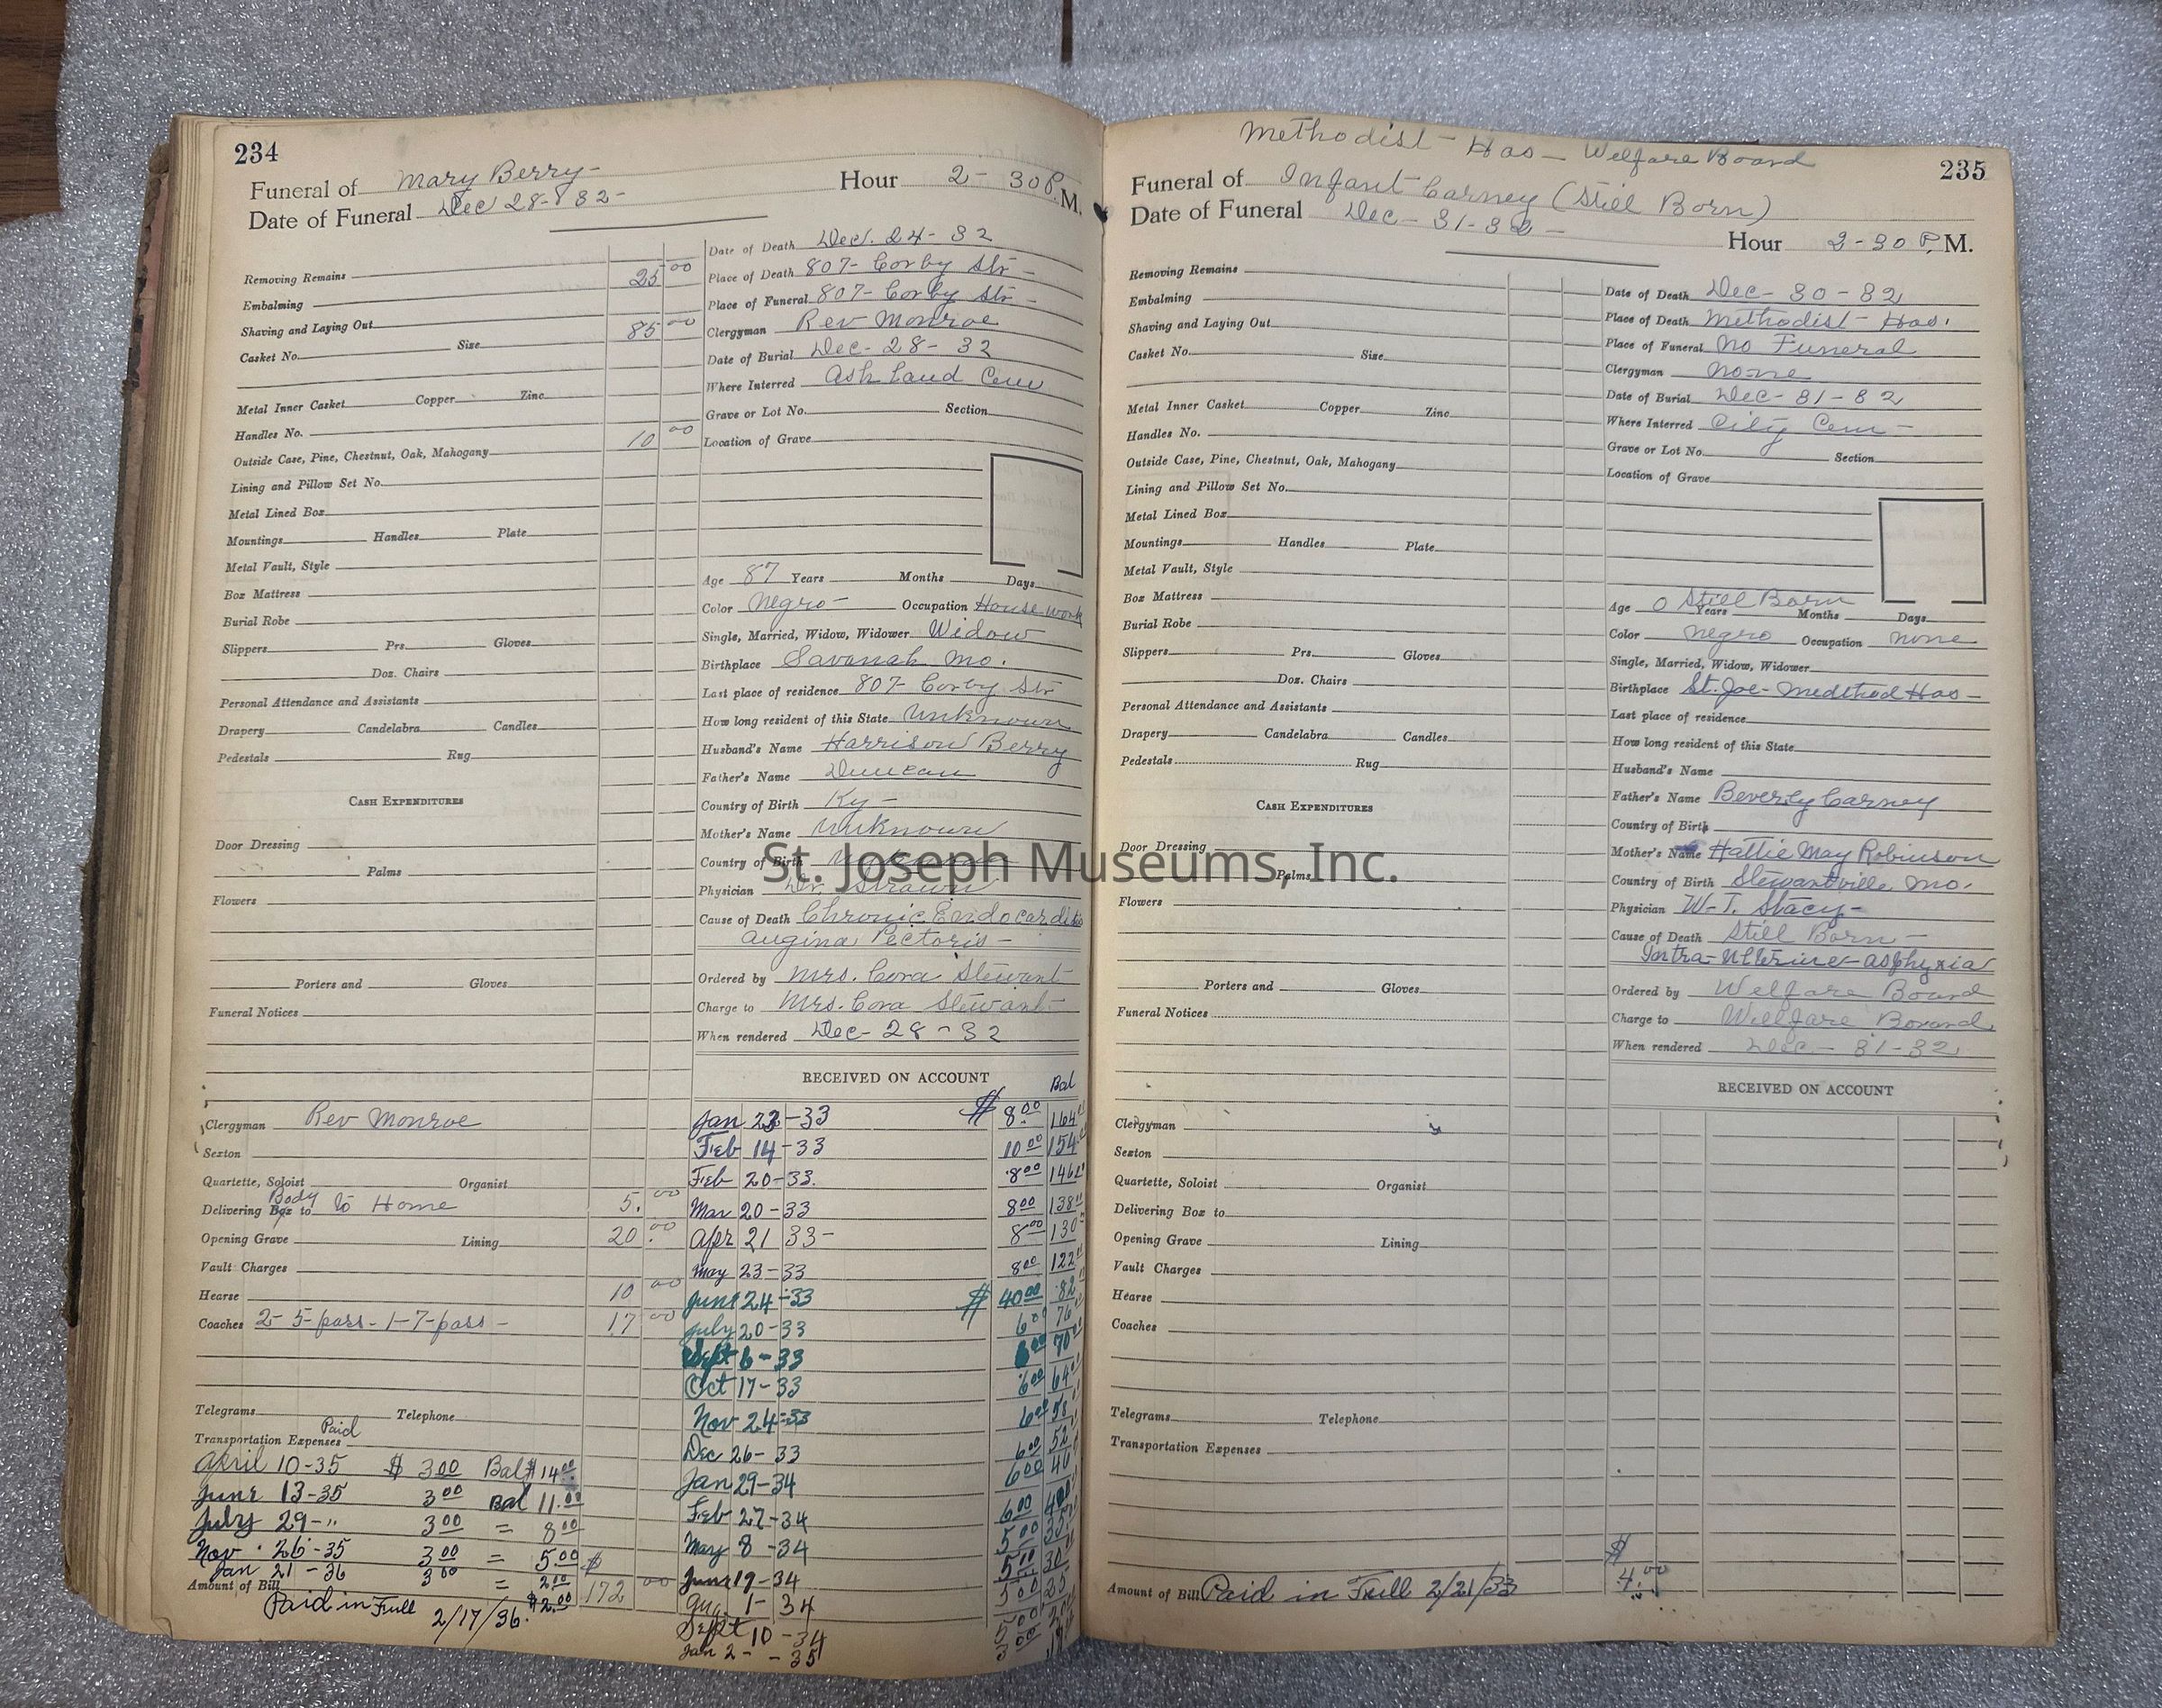 234
Funeral of Mary Berry- Hour 2-30 P.M.
Date of Funeral Dec 28-32-
Removing Remains 25 00
Embalming
Shaving and Laying Out 85 00
Casket No. Size
Metal Inner Casket Copper Zinc
Handles No. 10 00
Outside Case, Pine, Chestnut, Oak, Mahogany
Lining and Pillow Set No.
Metal Lined Box
Mountings Handles Plate
Metal Vault, Style
Box Mattress
Burial Robe
Slippers Prs. Gloves
Doz. Chairs
Personal Attendance and Assistants
Drapery Candelabra Candles
Pedestals Rug
CASH EXPENDITURES
Door Dressing
Palms
Flowers
Porters and Gloves
Funeral Notices
Clergyman Rev Monroe
Sexton
Quartette, Soloist Organist
Body
Delivering Box to to Home 5. 00
Opening Grave Lining 20. 00
Vault Charges
Hearse 10 00
Coaches 2-5-pass-1-7-pass- 17 00
Telegrams Telephone
Paid
Transportation Expenses
April 10-35 $ 3 00 Bal $ 14 00
June 13-35 3 00 Bal 11.00
July 29-" 3 00 = 8 00
Nov. 26-35 3 00 = 5 00
Jan 21-36 3 00 = 2 00
Amount of Bill $ 172 00
Paid in Full 2/17/36. $2.00
Date of Death Dec. 24-32
Place of Death 807-Corby Str-
Place of Funeral 807-Corby Str-
Clergyman Rev Monroe
Date of Burial Dec-28-32
Where Interred Ash Land Cem
Grave or Lot No. Section
Location of Grave
Age 87 Years Months Days
Color Negro- Occupation House work
Single, Married, Widow, Widower Widow
Birthplace Savanah Mo.
Last place of residence 807-Corby Str
How long resident of this State Unknown
Husband's Name Harrison Berry
Father's Name Duncan
Country of Birth Ky-
Mother's Name Unknown
Country of Birth
Physician Dr.
Cause of Death Chronic Endocarditis
Angina Pectoris-
Ordered by Mrs. Cora Stewart
Charge to Mrs. Cora Stewart-
When rendered Dec-28-32
RECEIVED ON ACCOUNT Bal
Jan 23-33 $ 8 00 164
Feb 14-33 10 00 154
Feb 20-33. 8 00 146
Mar 20-33 8 00 138
Apr 21 33- 8 00 130
May 23-33 8 00 122
June 24-33 $ 40 00 82
July 20-33 6 00 76
Sept 6-33 6 00 70
Oct 17-33 6 00 64
Nov 24-33 6 00 58
Dec 26-33 6 00 52
Jan 29-34 6 00 46
Feb 27-34 6 00 40
May 8-34 5 00 35
June 19-34 5 00 30
Aug. 1-34 5 00 25
Sept 10-34 5 00 20
Jan 2--35 3 00
235
Methodist-Hos-Welfare Board
Funeral of Infant Carney (Still Born)
Date of Funeral Dec-31-32-
Hour 2-30 P.M.
Removing Remains
Embalming
Shaving and Laying Out
Casket No. Size
Metal Inner Casket Copper Zinc
Handles No.
Outside Case, Pine, Chestnut, Oak, Mahogany
Lining and Pillow Set No.
Metal Lined Box
Mountings Handles Plate
Metal Vault, Style
Box Mattress
Burial Robe
Slippers Prs. Gloves
Doz. Chairs
Personal Attendance and Assistants
Drapery Candelabra Candles
Pedestals Rug
CASH EXPENDITURES
Door Dressing
Palms
Flowers
Porters and Gloves
Funeral Notices
Clergyman
Sexton
Quartette, Soloist Organist
Delivering Box to
Opening Grave Lining
Vault Charges
Hearse
Coaches
Telegrams Telephone
Transportation Expenses
Amount of Bill Paid in Full 2/21/33 $ 4.00
Date of Death Dec-30-32
Place of Death Methodist-Hos.
Place of Funeral No Funeral
Clergyman None
Date of Burial Dec-31-32
Where Interred City Cem-
Grave or Lot No. Section
Location of Grave
Age 0 Still Born Years Months Days
Color Negro Occupation None
Single, Married, Widow, Widower
Birthplace St. Joe-Medthod Hos-
Last place of residence
How long resident of this State
Husband's Name
Father's Name Beverly Carney
Country of Birth
Mother's Name Hattie May Robinson
Country of Birth Stewartville Mo.
Physician W-T. Stacy-
Cause of Death Still Born-
Intra-Utterine-asphyxia
Ordered by Welfare Board
Charge to Wellfare Board
When rendered Dec-31-32
RECEIVED ON ACCOUNT
St. Joseph Museums, Inc.